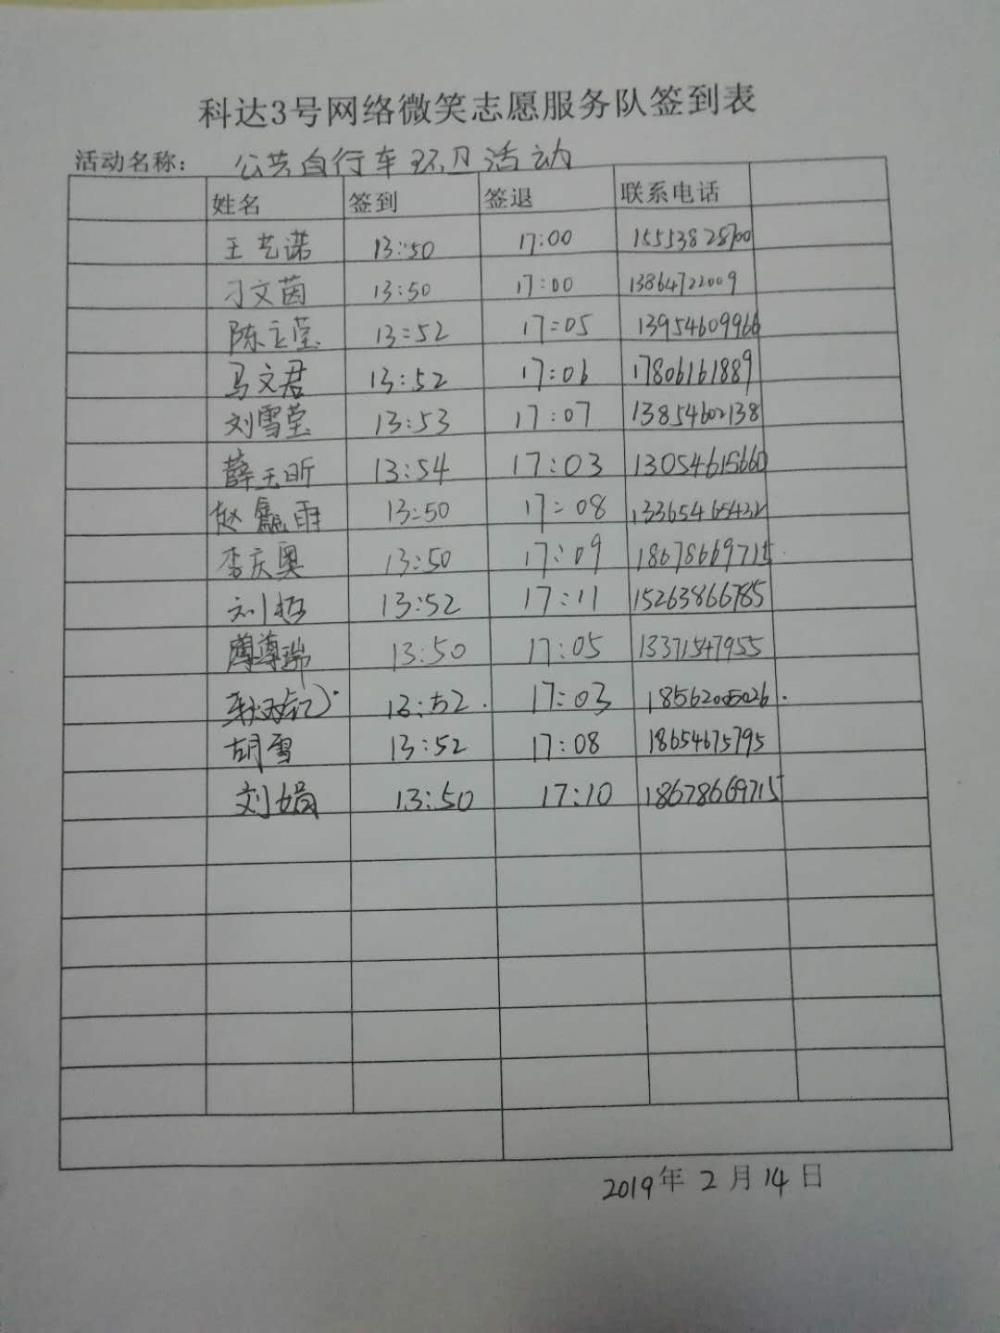 科达3号网络微笑志愿服务队签到表
活动名称: 公共自行车环卫活动
姓名 签到 签退 联系电话
王艺诺 13:50 17:00 15553828700
刁文茵 13:50 17:00 13864722009
陈立莹 13:52 17:05 13954609966
马文君 13:52 17:06 17806161889
刘雪莹 13:53 17:07 13854602138
薛玉昕 13:54 17:03 13054615660
赵鑫雨 13:50 17:08 13365465432
李庆奥 13:50 17:09 18678669715
刘哲 13:52 17:11 15263866785
尊瑞 13:50 17:05 13371547955
13:52 17:03 18562005026
胡雪 13:52 17:08 18654675795
刘娟 13:50 17:10 18678669715
2019年 2月14日